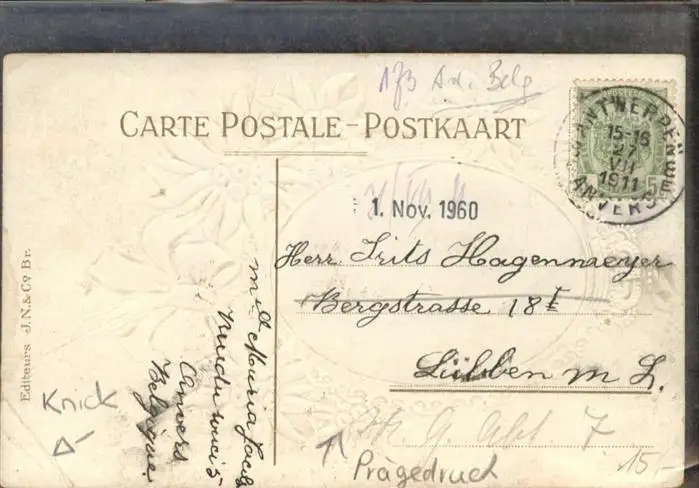 173 Ad. Belg
CARTE POSTALE - POSTKAART
ANTWERPEN
15-16
27
VII
1911
ANVERS
5
1. Nov. 1960
Herr Frits Hagenmeyer
Bergstrasse 18I
Lübben m L.
Mlle Maria
5
Anvers
Belgique
Editeurs J.N. & Co Br.
Knick
Abt. 7
Prägedruck
15,-